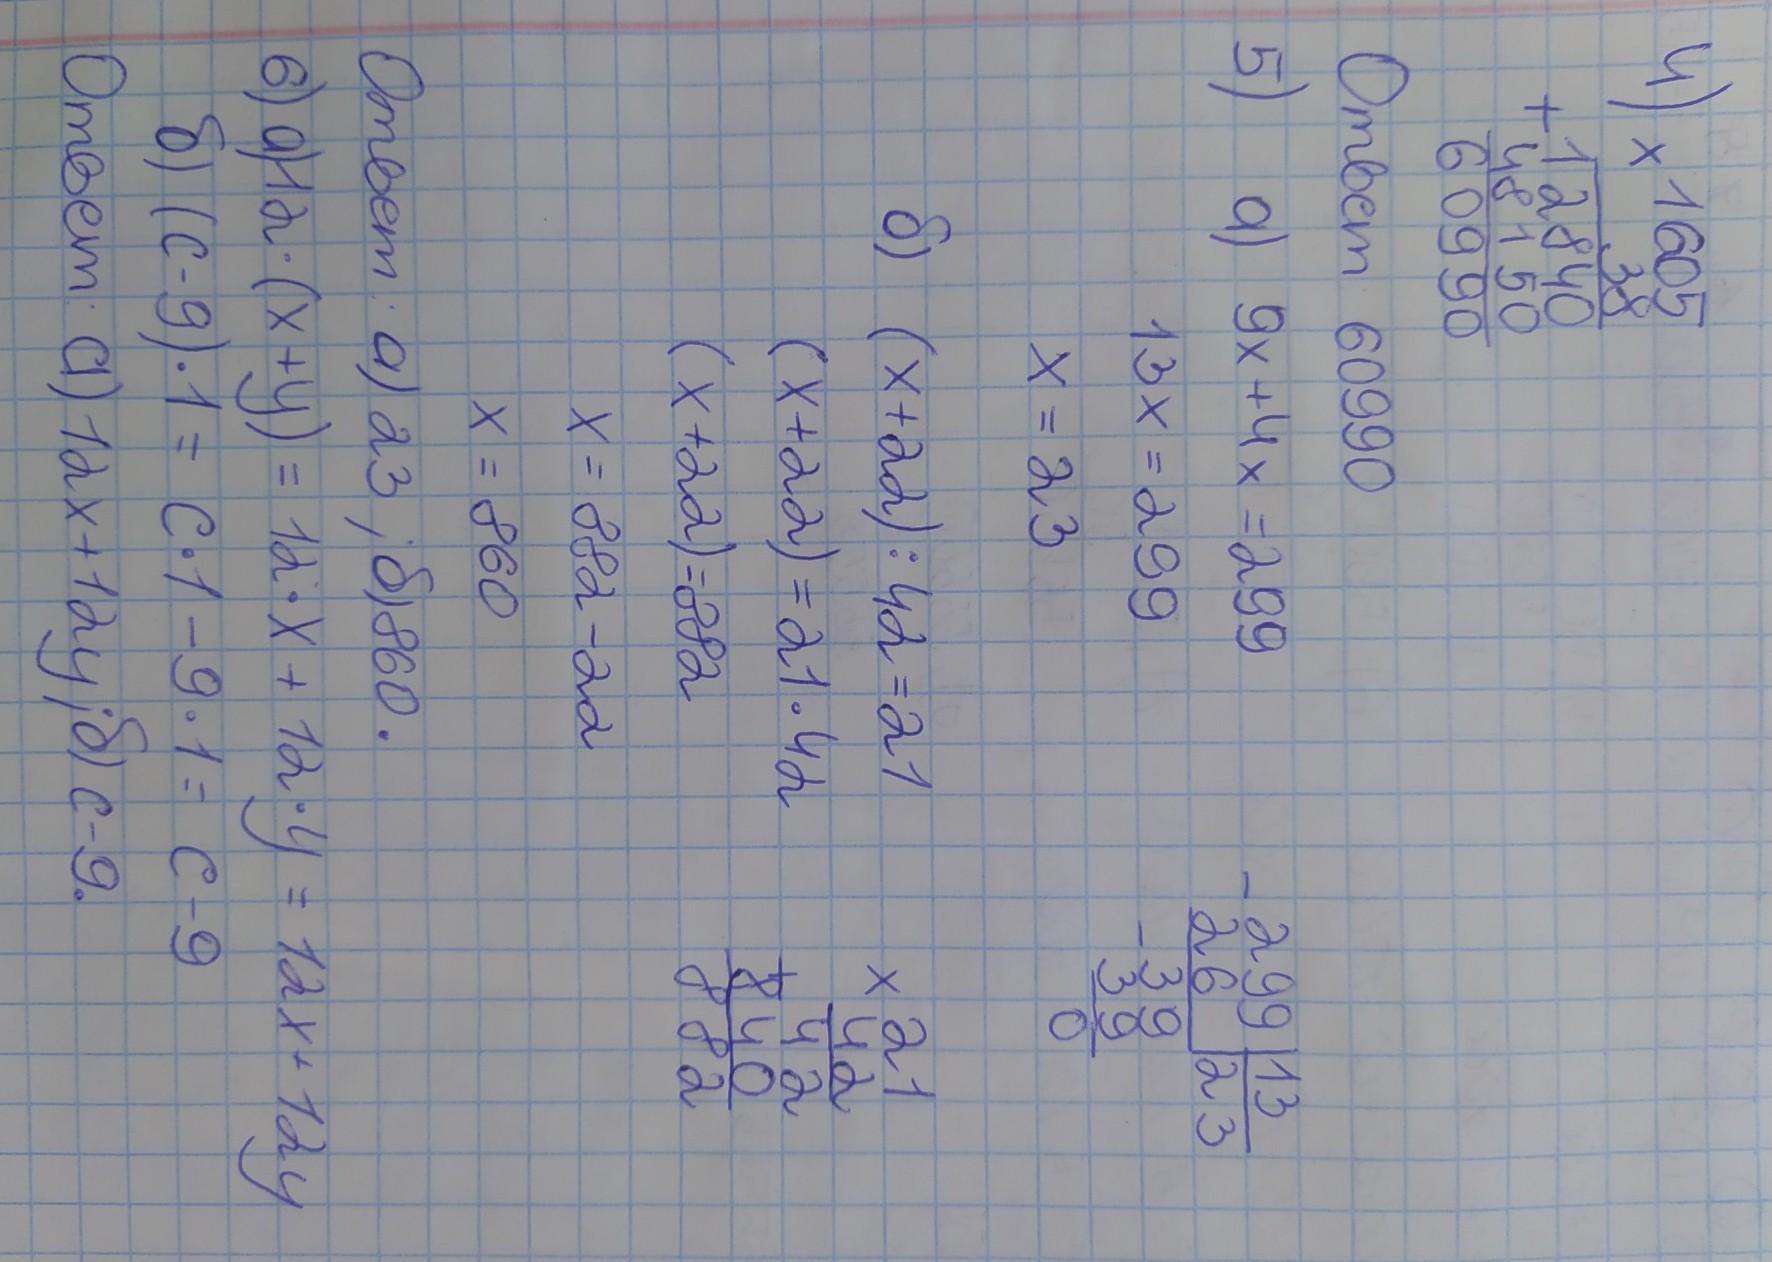 4) × 1605
38
+ 12840
48150
60990
Ответ 60990
5) а) 9x+4x=299
13x=299
x=23
- 299 | 13
26 | 23
- 39
39
0
б) (x+22):42=21
(x+22)=21·42
(x+22)=882
x=882-22
x=860
× 21
42
+ 42
840
882
Ответ: а) 23 ; б) 860.
6) а) 12·(x+y)=12·x+12·y=12x+12y
б) (c-9)·1=c·1-9·1=c-9
Ответ: а) 12x+12y; б) c-9.